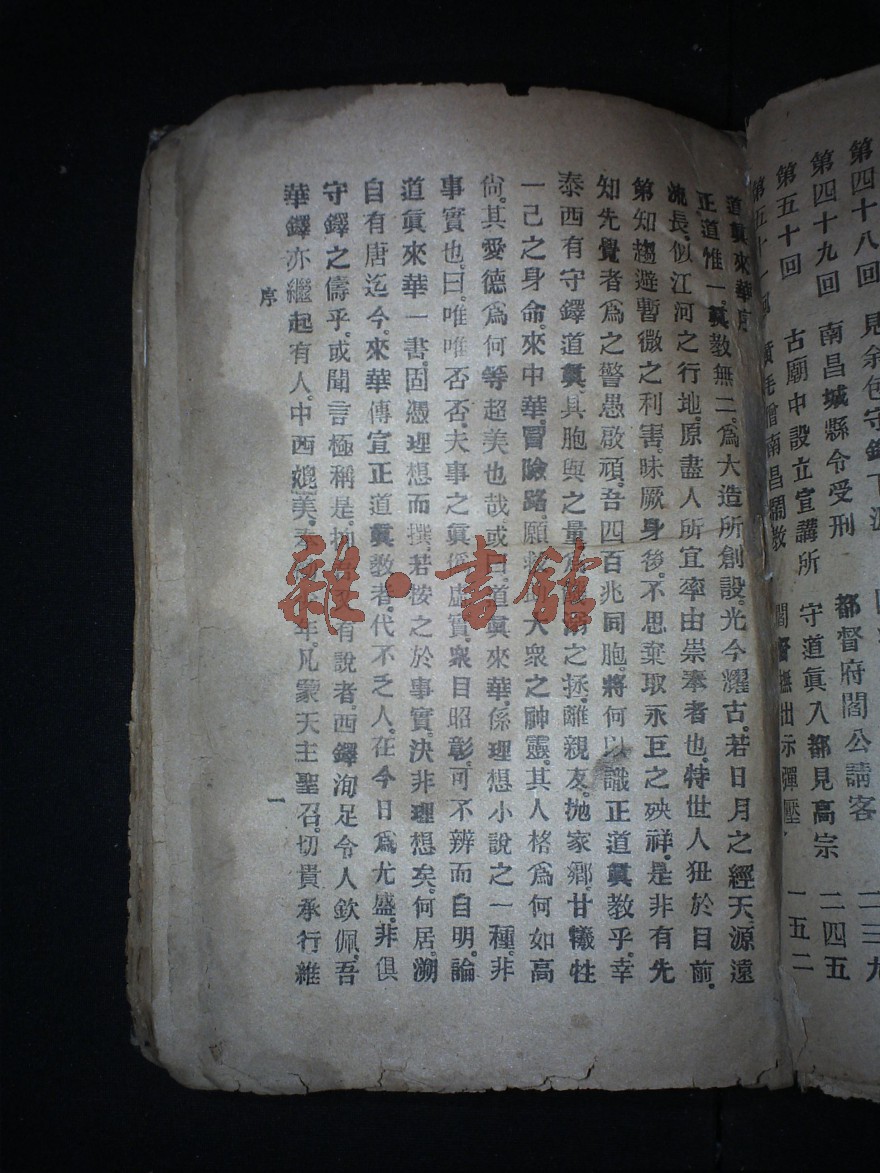 第四十八回 二三九
第四十九回 南昌城縣令受刑 都督府閻公請客 二四五
第五十回 古廟中設立宣講所 守道眞入都見高宗 一五二
第五十一回 南昌闡教 閻督撫出示彈壓
道眞來華序
正道惟一。眞教無二。爲大造所創設。光今耀古。若日月之經天。源遠
流長。似江河之行地。原盡人所宜率由崇奉者也。特世人狃於目前。
第知趨避暫微之利害。昧厥身後。不思棄取永巨之殃祥。是非有先
知先覺者。爲之警愚啟頑。吾四百兆同胞。將何以識正道眞教乎。幸
泰西有守鐸道眞。具胞與之量。爲之拯。離親友。抛家鄉。甘犧牲
一己之身命。來中華。冒險路。願救大衆之神靈。其人格爲何如高
尙。其愛德爲何等超美也哉。或曰。道眞來華。係理想小說之一種。非
事實也。曰。唯唯否否。夫事之眞僞虛實。衆目昭彰。可不辨而自明。論
道眞來華一書。固憑理想而撰。若按之於事實。決非理想矣。何居。溯
自有唐迄今。來華傳宣正道眞教者。代不乏人。在今日爲尤盛。非俱
守鐸之儔乎。或聞言極稱是。有說者。西鐸洵足令人欽佩。吾
華鐸亦繼起有人。中西媲美。年。凡蒙天主聖召。切貴承行維
序
一
雜·書館